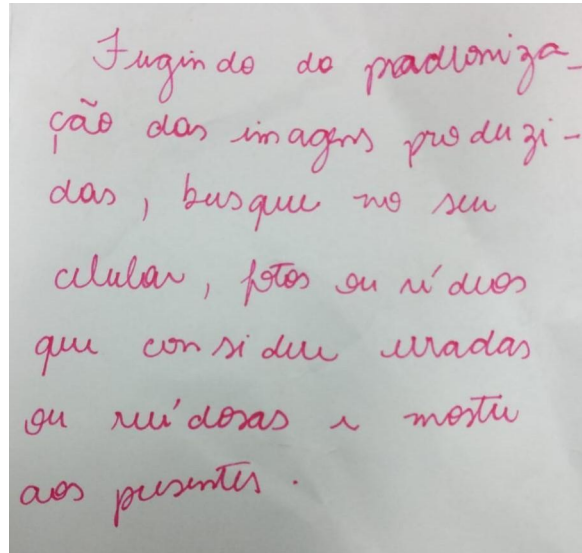 Fugindo da padroniza-
ção das imagens produzi-
das, busque no seu
celular, fotos ou vídeos
que considere erradas
ou ruídosas e mostre
aos presentes.